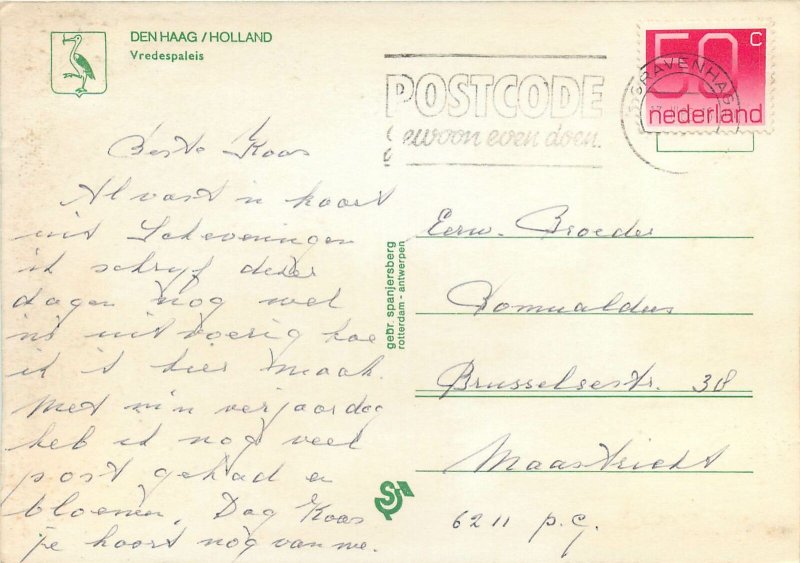 DEN HAAG / HOLLAND
Vredespaleis
POSTCODE
gewoon even doen.
'S-GRAVENHAGE
50 c
nederland
Beste Koos
Alvast n kaart
uit Scheveningen
ik schryf dezer
dagen nog wel
ns uitvoerig hoe
ik t hier maak.
Met m'n verjaardag
heb ik nog veel
post gehad en
bloemen. Dag Koos
je hoort nog van me.
gebr. spanjersberg
rotterdam - antwerpen
Eerw. Broeder
Romualdus
Brusselsestr. 38
Maastricht
6211 p.g.